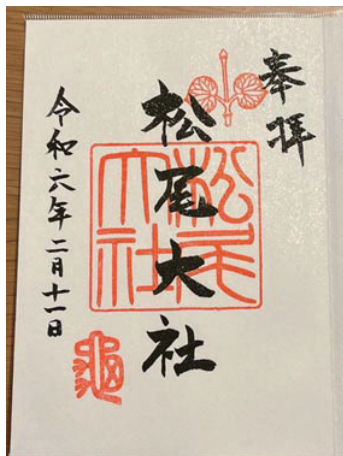 奉拝
松尾大社
松尾大社
令和六年二月十一日
亀